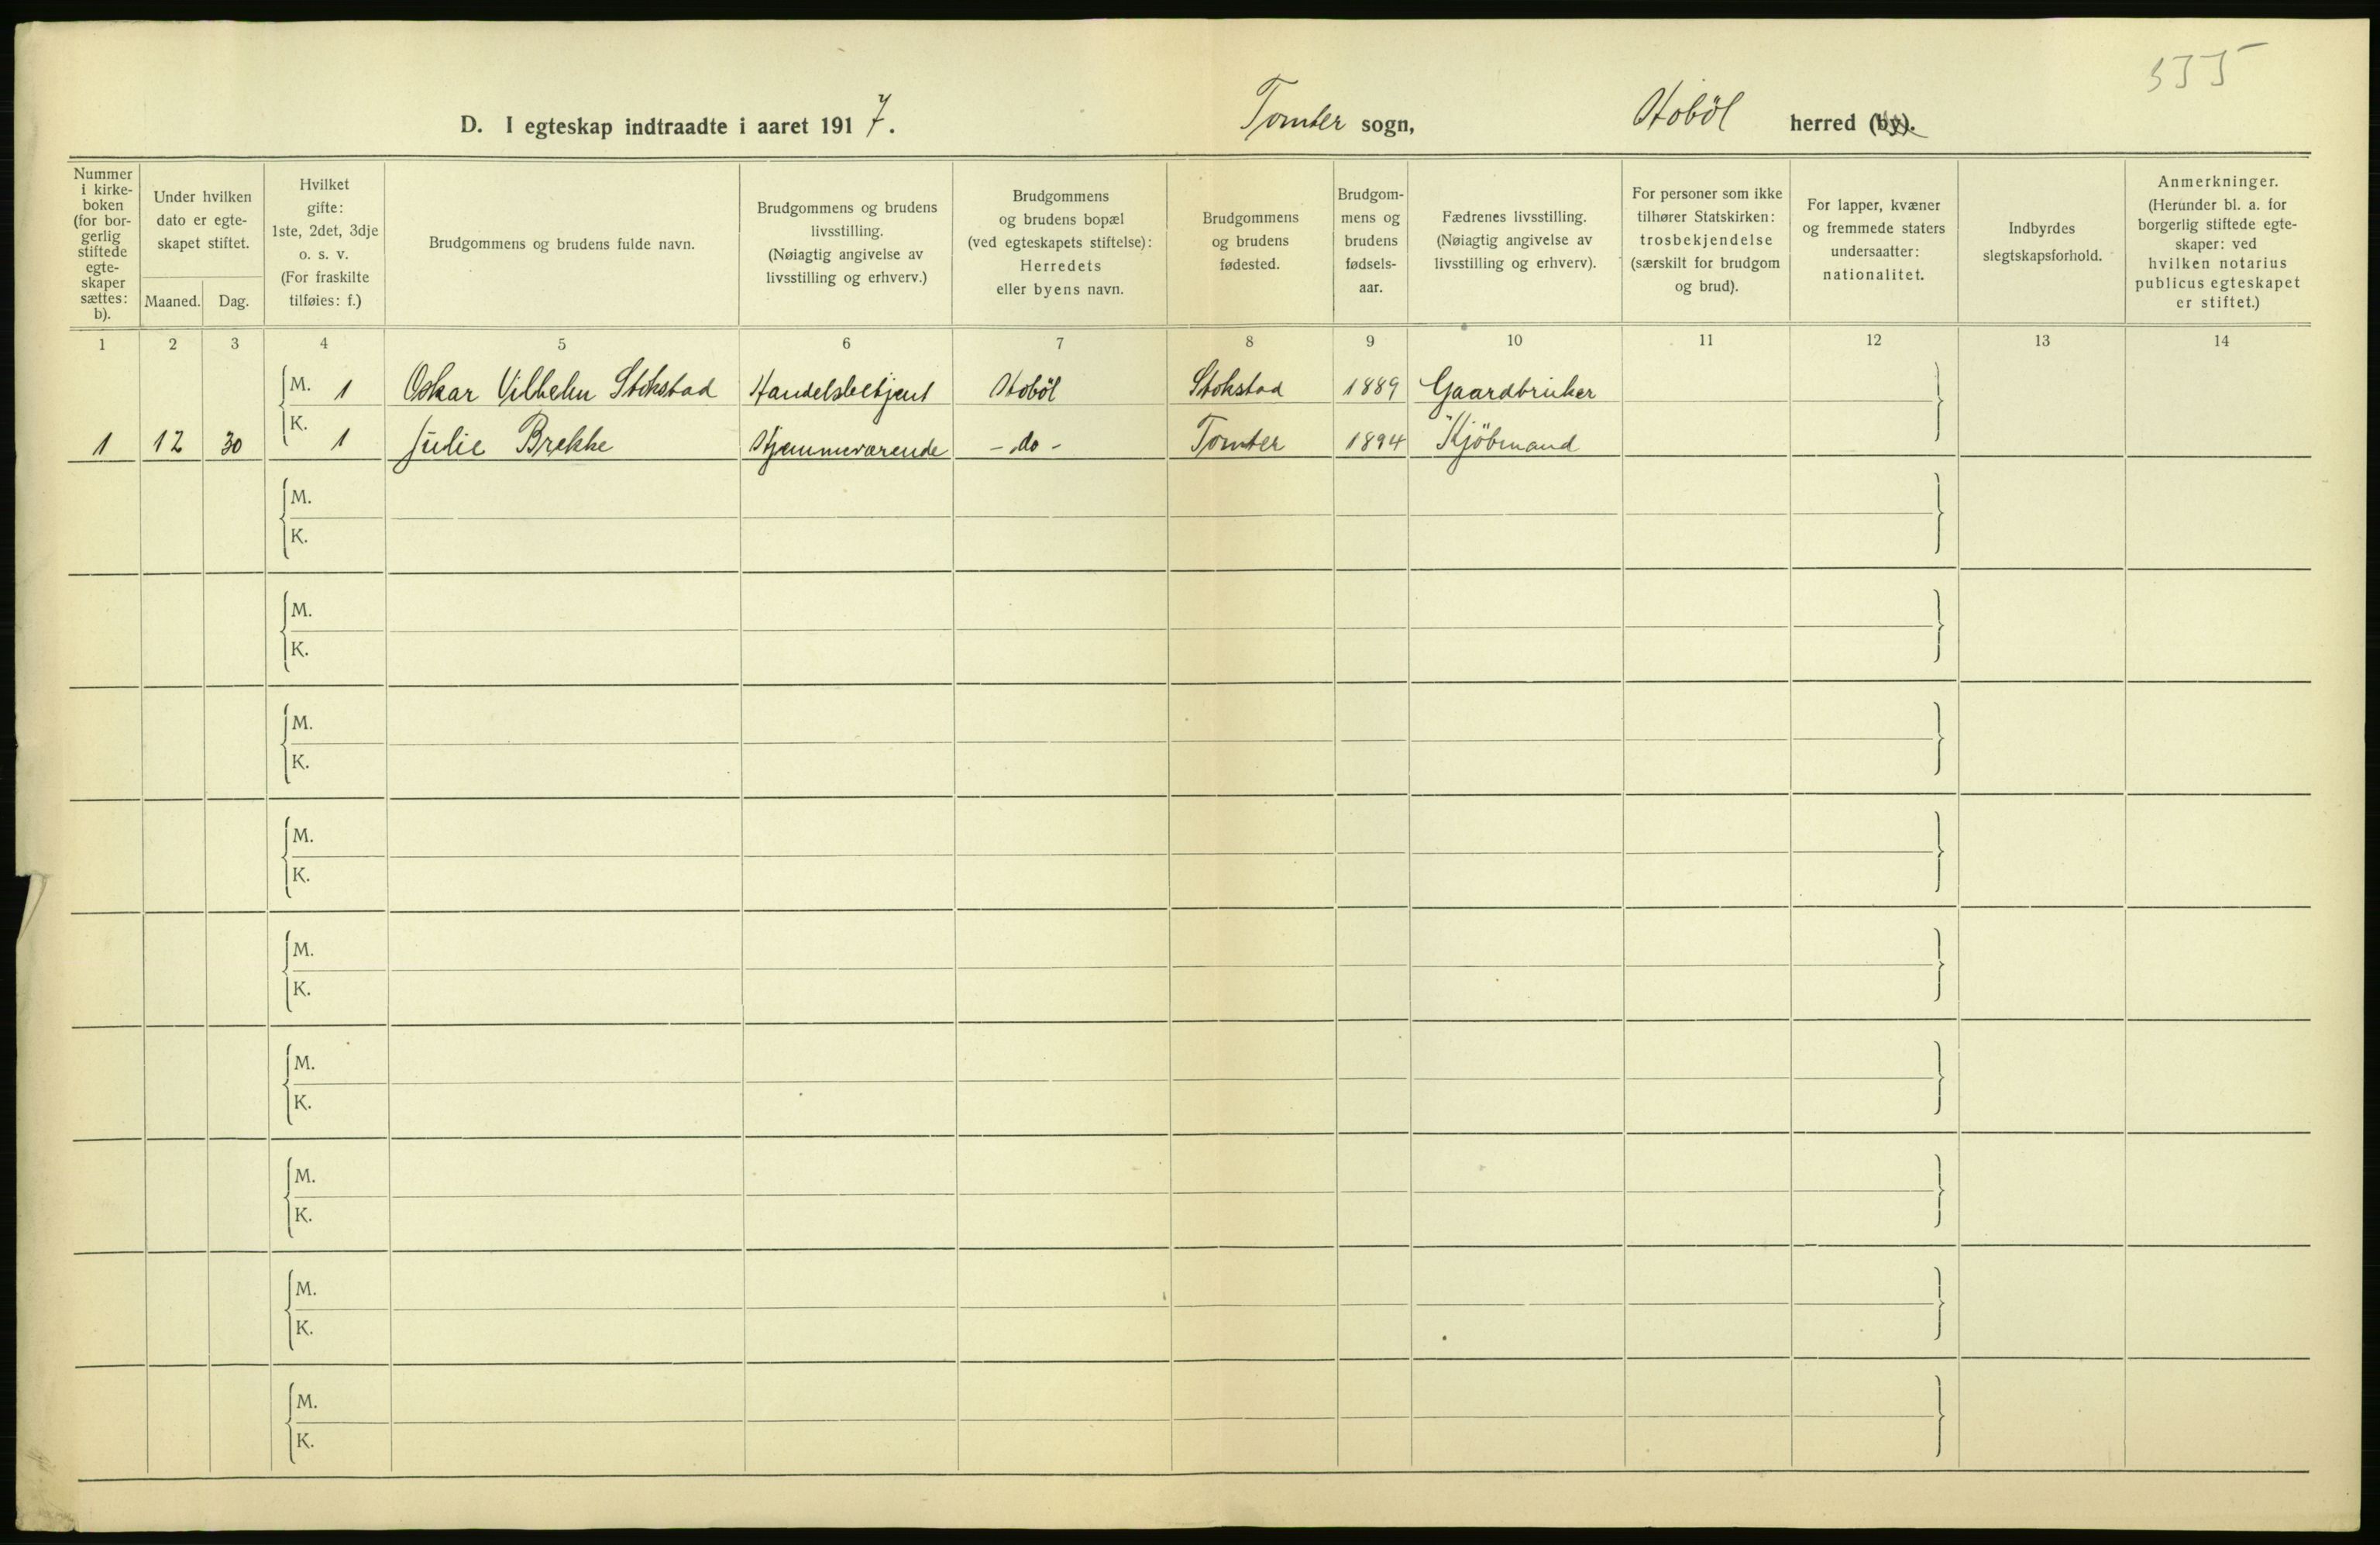 535
D. I egteskap indtraadte i aaret 1917. Tomter sogn, Hobøl herred (by).
Nummer i kirke-boken (for bor-gerlig stiftede egte-skaper sættes: b).
Under hvilken dato er egte-skapet stiftet.
Maaned. Dag.
Hvilket gifte: 1ste, 2det, 3dje o. s. v. (For fraskilte tilføies: f.)
Brudgommens og brudens fulde navn.
Brudgommens og brudens livsstilling. (Nøiagtig angivelse av livsstilling og erhverv.)
Brudgommens og brudens bopæl (ved egteskapets stiftelse): Herredets eller byens navn.
Brudgommens og brudens fødested.
Brudgom-mens og brudens fødsels-aar.
Fædrenes livsstilling. (Nøiagtig angivelse av livsstilling og erhverv).
For personer som ikke tilhører Statskirken: trosbekjendelse (særskilt for brudgom og brud).
For lapper, kvæner og fremmede staters undersaatter: nationalitet.
Indbyrdes slegtskapsforhold.
Anmerkninger. (Herunder bl. a. for borgerlig stiftede egte-skaper: ved hvilken notarius publicus egteskapet er stiftet.)
1 2 3 4 5 6 7 8 9 10 11 12 13 14
M. 1 Oskar Vilhelm Stokstad Handelsbetjent Hoböl Stokstad 1889 Gaardbruker
1 12 30 K. 1 Julie Brekke Hjemmeværende - do - Tomter 1894 Kjöbmand
M.
K.
M.
K.
M.
K.
M.
K.
M.
K.
M.
K.
M.
K.
M.
K.
M.
K.